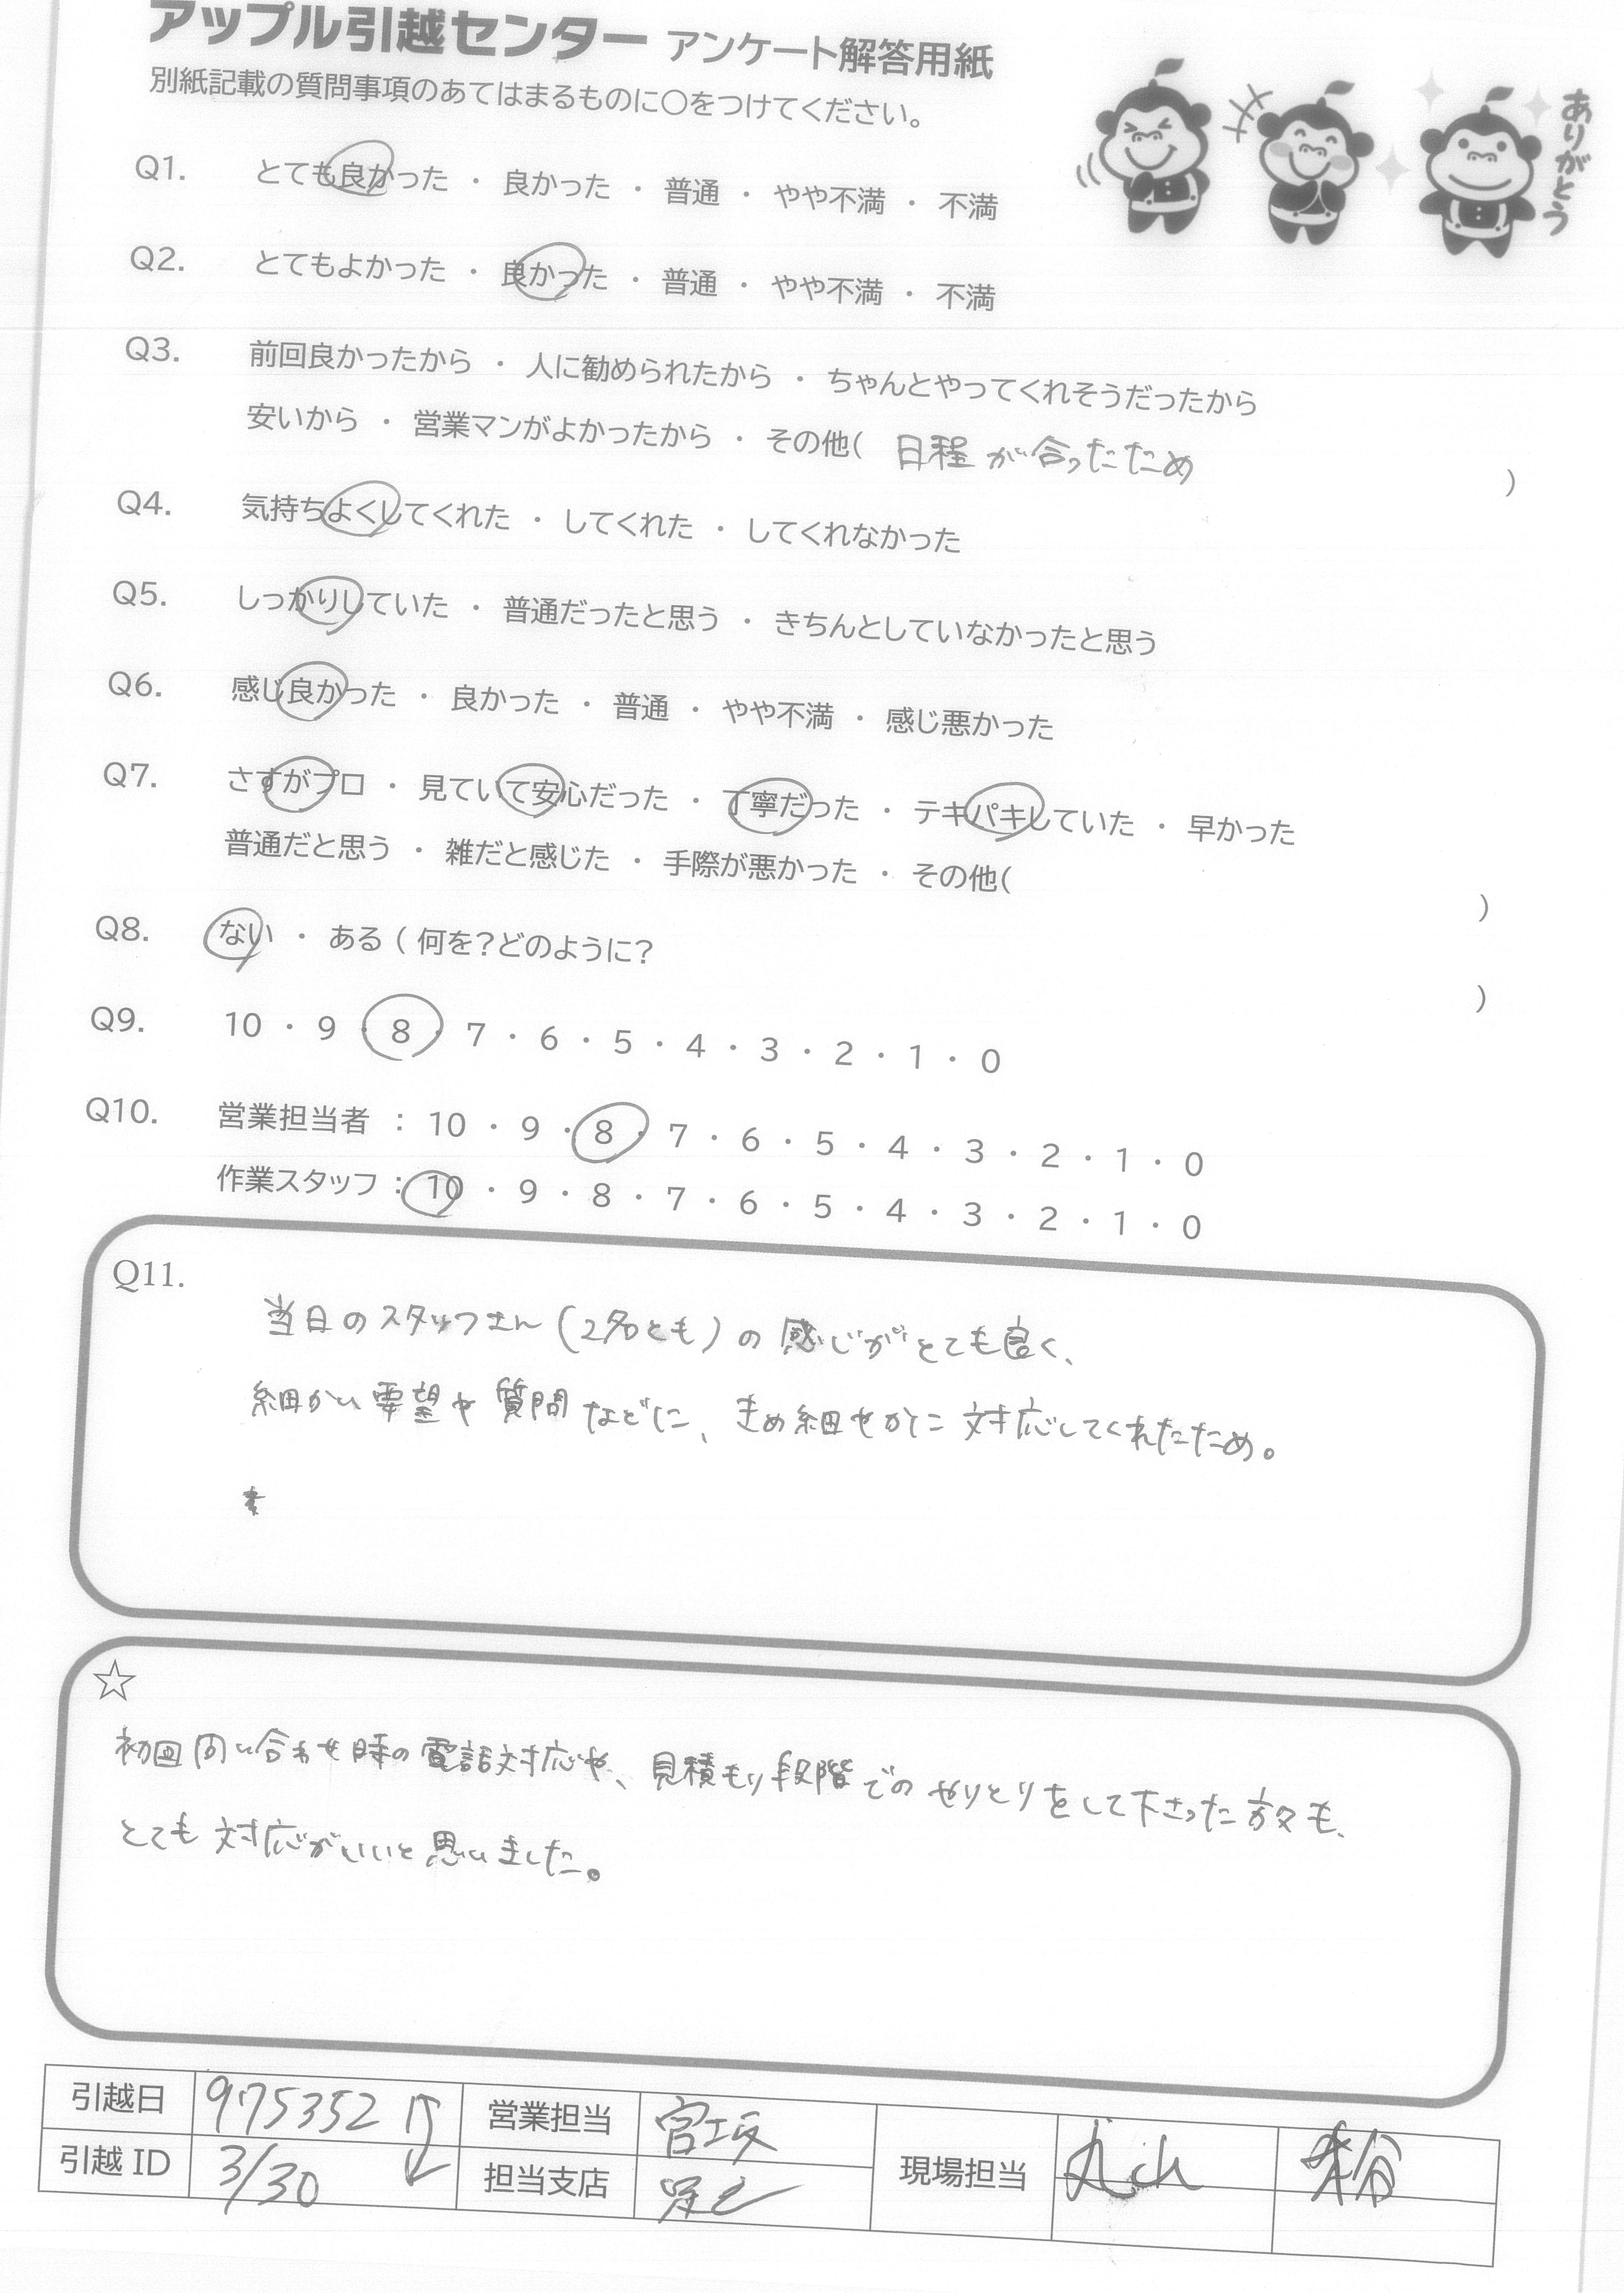 アップル引越センター アンケート解答用紙
別紙記載の質問事項のあてはまるものに○をつけてください。
ありがとう
Q1. とても良かった ・ 良かった ・ 普通 ・ やや不満 ・ 不満
Q2. とてもよかった ・ 良かった ・ 普通 ・ やや不満 ・ 不満
Q3. 前回良かったから ・ 人に勧められたから ・ ちゃんとやってくれそうだったから
安いから ・ 営業マンがよかったから ・ その他( 日程が合ったため )
Q4. 気持ちよくしてくれた ・ してくれた ・ してくれなかった
Q5. しっかりしていた ・ 普通だったと思う ・ きちんとしていなかったと思う
Q6. 感じ良かった ・ 良かった ・ 普通 ・ やや不満 ・ 感じ悪かった
Q7. さすがプロ ・ 見ていて安心だった ・ 丁寧だった ・ テキパキしていた ・ 早かった
普通だと思う ・ 雑だと感じた ・ 手際が悪かった ・ その他( )
Q8. ない ・ ある ( 何を?どのように? )
Q9. 10 ・ 9 ・ 8 ・ 7 ・ 6 ・ 5 ・ 4 ・ 3 ・ 2 ・ 1 ・ 0
Q10. 営業担当者 : 10 ・ 9 ・ 8 ・ 7 ・ 6 ・ 5 ・ 4 ・ 3 ・ 2 ・ 1 ・ 0
作業スタッフ : 10 ・ 9 ・ 8 ・ 7 ・ 6 ・ 5 ・ 4 ・ 3 ・ 2 ・ 1 ・ 0
Q11.
当日のスタッフさん(2名とも)の感じがとても良く、
細かい要望や質問などに、きめ細やかに対応してくれたため。
☆
初回問い合わせ時の電話対応や、見積もり段階でのやりとりをして下さった方々も、
とても対応がいいと思いました。
引越日 975352 営業担当 宮坂 現場担当 丸山
引越ID 3/30 担当支店